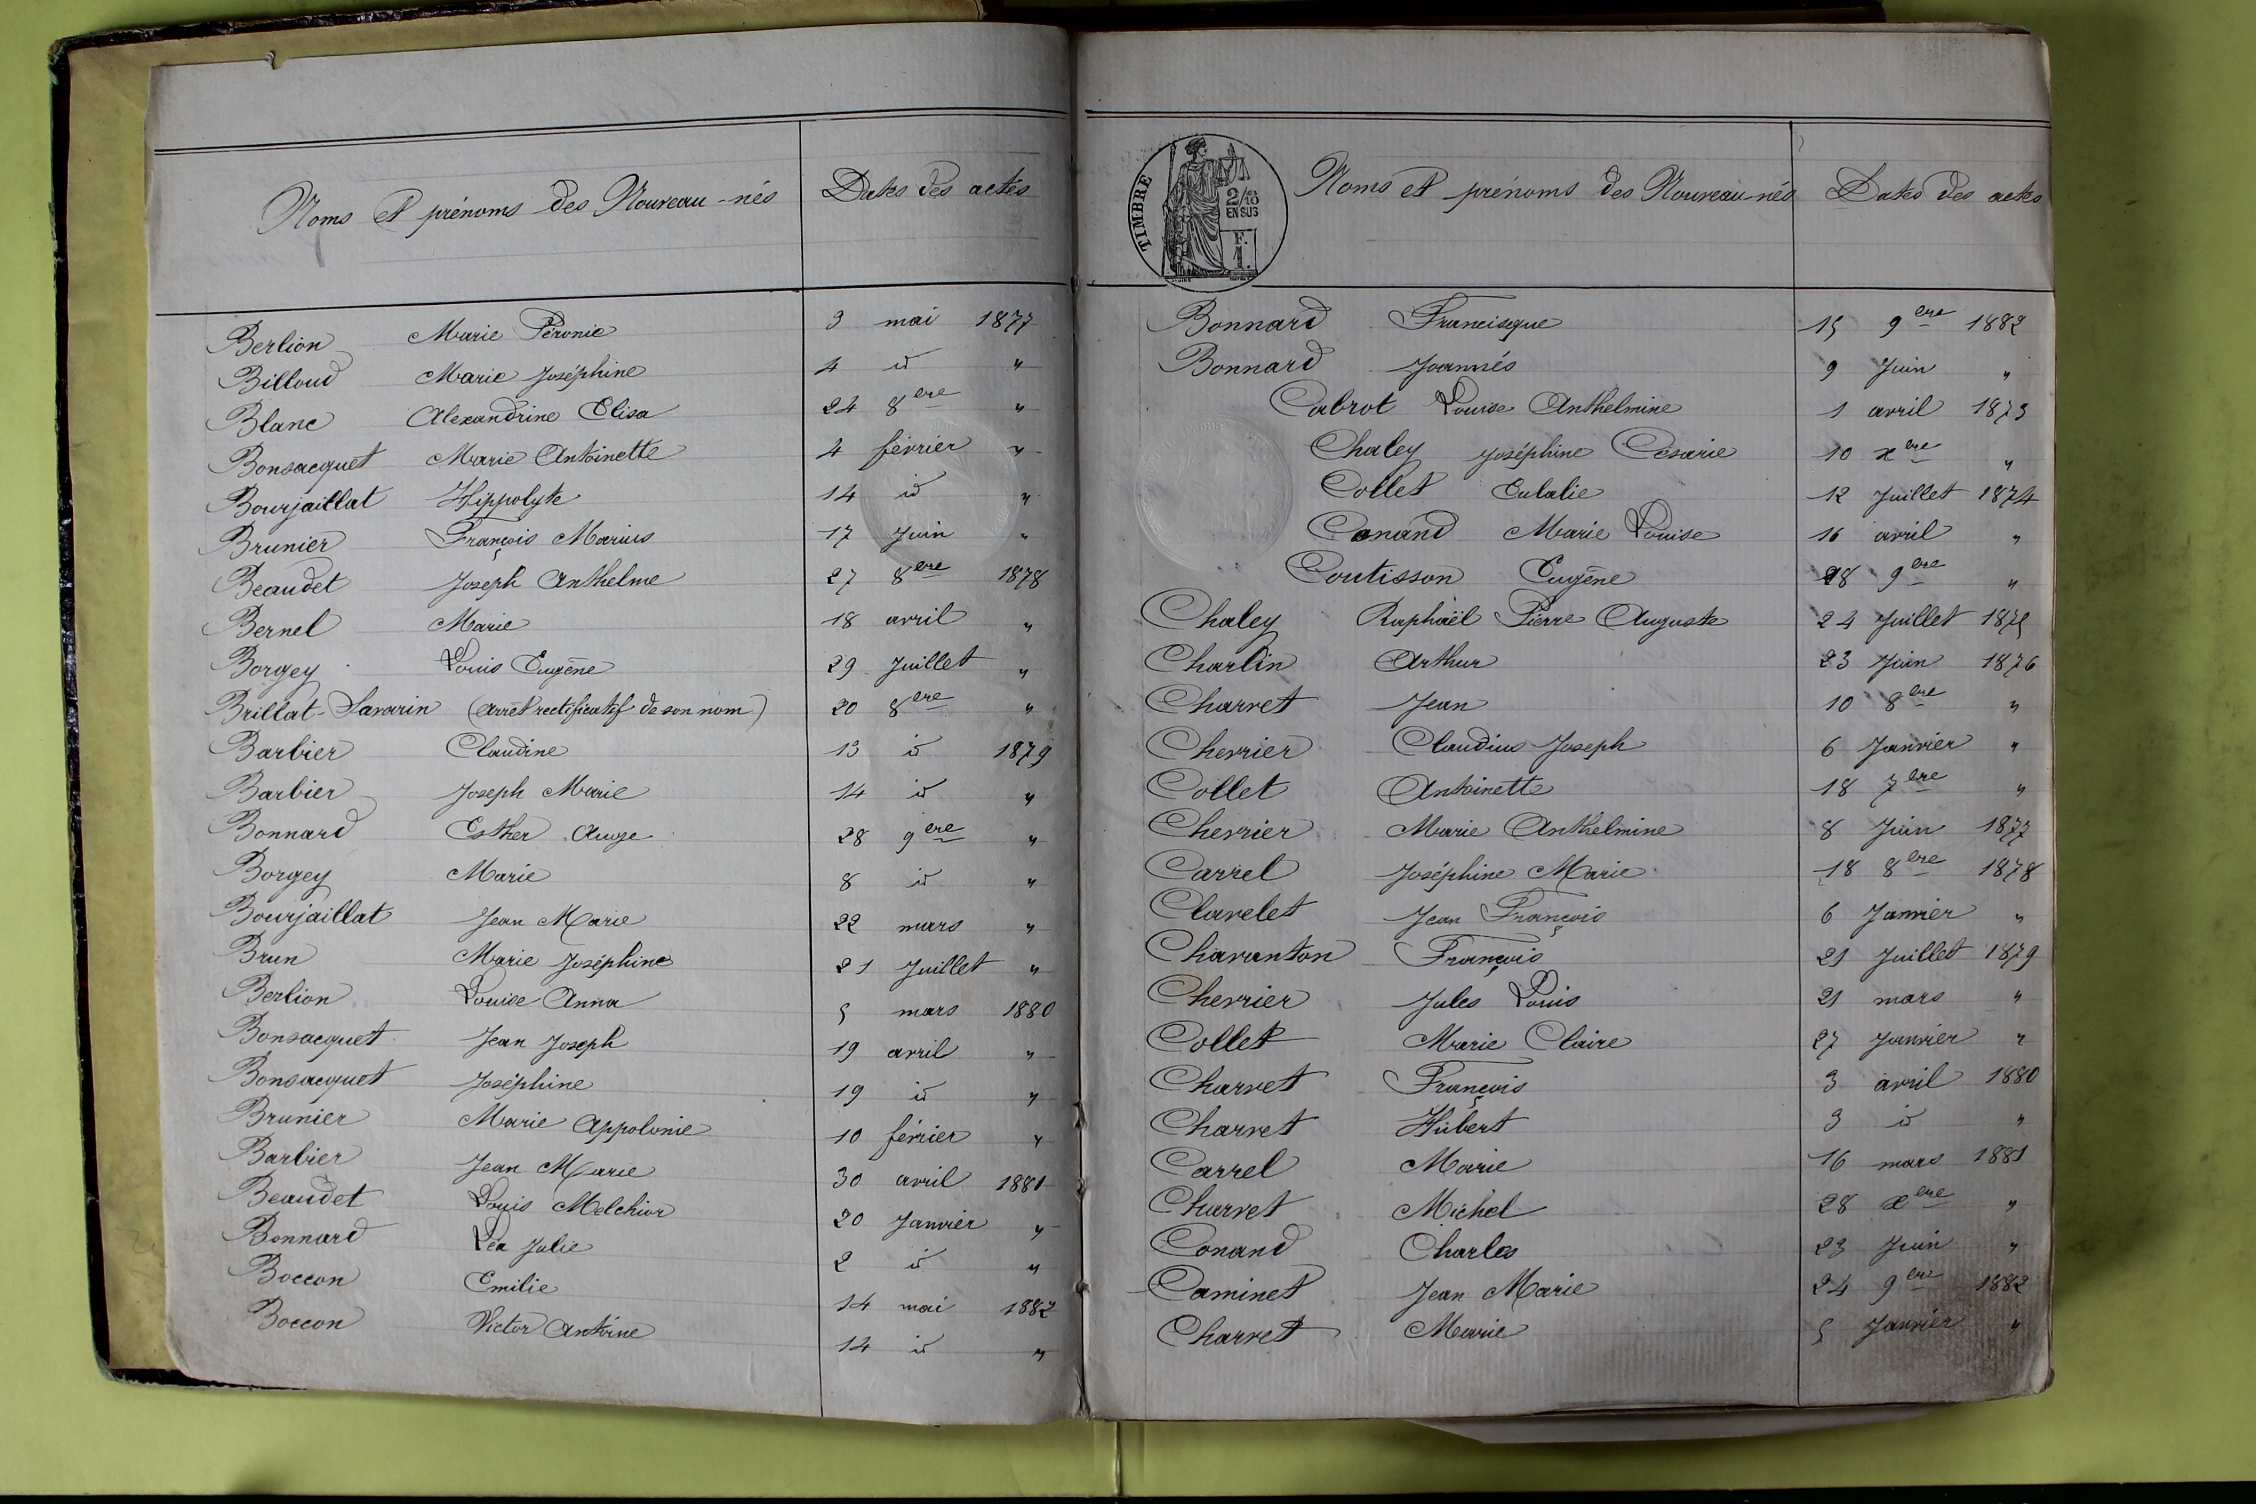 Noms et prénoms des Nouveau-nés Dates des actes
Berlion Marie Péronie 3 mai 1877
Billoud Marie Joséphine 4 id "
Blanc Alexandrine Elisa 24 8bre "
Bonsacquet Marie Antoinette 4 février "
Bourjaillat Hippolyte 14 id "
Brunier François Marius 17 Juin "
Beaudet Joseph Anthelme 27 8bre 1878
Bernel Marie 18 avril "
Borgey Louis Eugène 29 Juillet "
Brillat-Savarin (arrêt rectificatif de son nom) 20 8bre "
Barbier Claudine 13 id 1879
Barbier Joseph Marie 14 id "
Bonnard Esther Auge 28 9bre "
Borgey Marie 8 id "
Bourjaillat Jean Marie 22 mars "
Brun Marie Joséphine 21 Juillet "
Berlion Louise Anna 5 mars 1880
Bonsacquet Jean Joseph 19 avril "
Bonsacquet Joséphine 19 id "
Brunier Marie Appolonie 10 février "
Barbier Jean Marie 30 avril 1881
Beaudet Louis Melchior 20 Janvier "
Bonnard Léa Julie 2 id "
Boccon Emilie 14 mai 1882
Boccon Victor Antoine 14 id "
TIMBRE
2/10
EN SUS
F.
1.
Noms et prénoms des Nouveau-nés Dates des actes
Bonnard Francisque 15 9bre 1882
Bonnard Joannés 9 Juin "
Cabrot Louise Anthelmine 1 avril 1873
Chaley Joséphine Césarie 10 xbre "
Collet Eulalie 12 Juillet 1874
Conand Marie Louise 16 avril "
Coutisson Eugène 28 9bre "
Chaley Raphaël Pierre Auguste 24 Juillet 1875
Charlin Arthur 23 Juin 1876
Charvet Jean 10 8bre "
Cherrier Claudius Joseph 6 Janvier "
Collet Antoinette 18 7bre "
Cherrier Marie Anthelmine 8 Juin 1877
Carrel Joséphine Marie 18 8bre 1878
Clavelet Jean François 6 Janvier "
Charanton François 21 Juillet 1879
Cherrier Jules Louis 21 mars "
Collet Marie Claire 27 Janvier "
Charvet François 3 avril 1880
Charvet Hubert 3 id "
Carrel Marie 16 mars 1881
Charvet Michel 28 xbre "
Conand Charles 23 Juin "
Caminet Jean Marie 24 9bre 1882
Charvet Marie 5 Janvier "